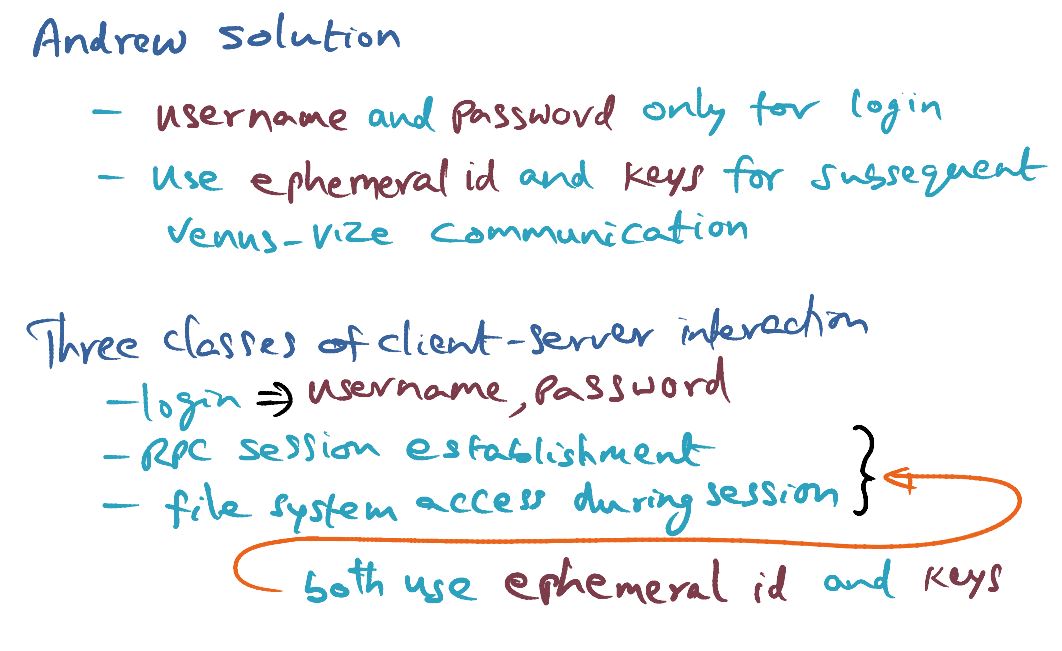 Andrew solution
- username and password only for login
- Use ephemeral id and keys for subsequent
venus-vize communication
Three classes of client-server interaction
- login ⇒ username, password
- RPC session establishment
- file system access during session
both use ephemeral id and keys